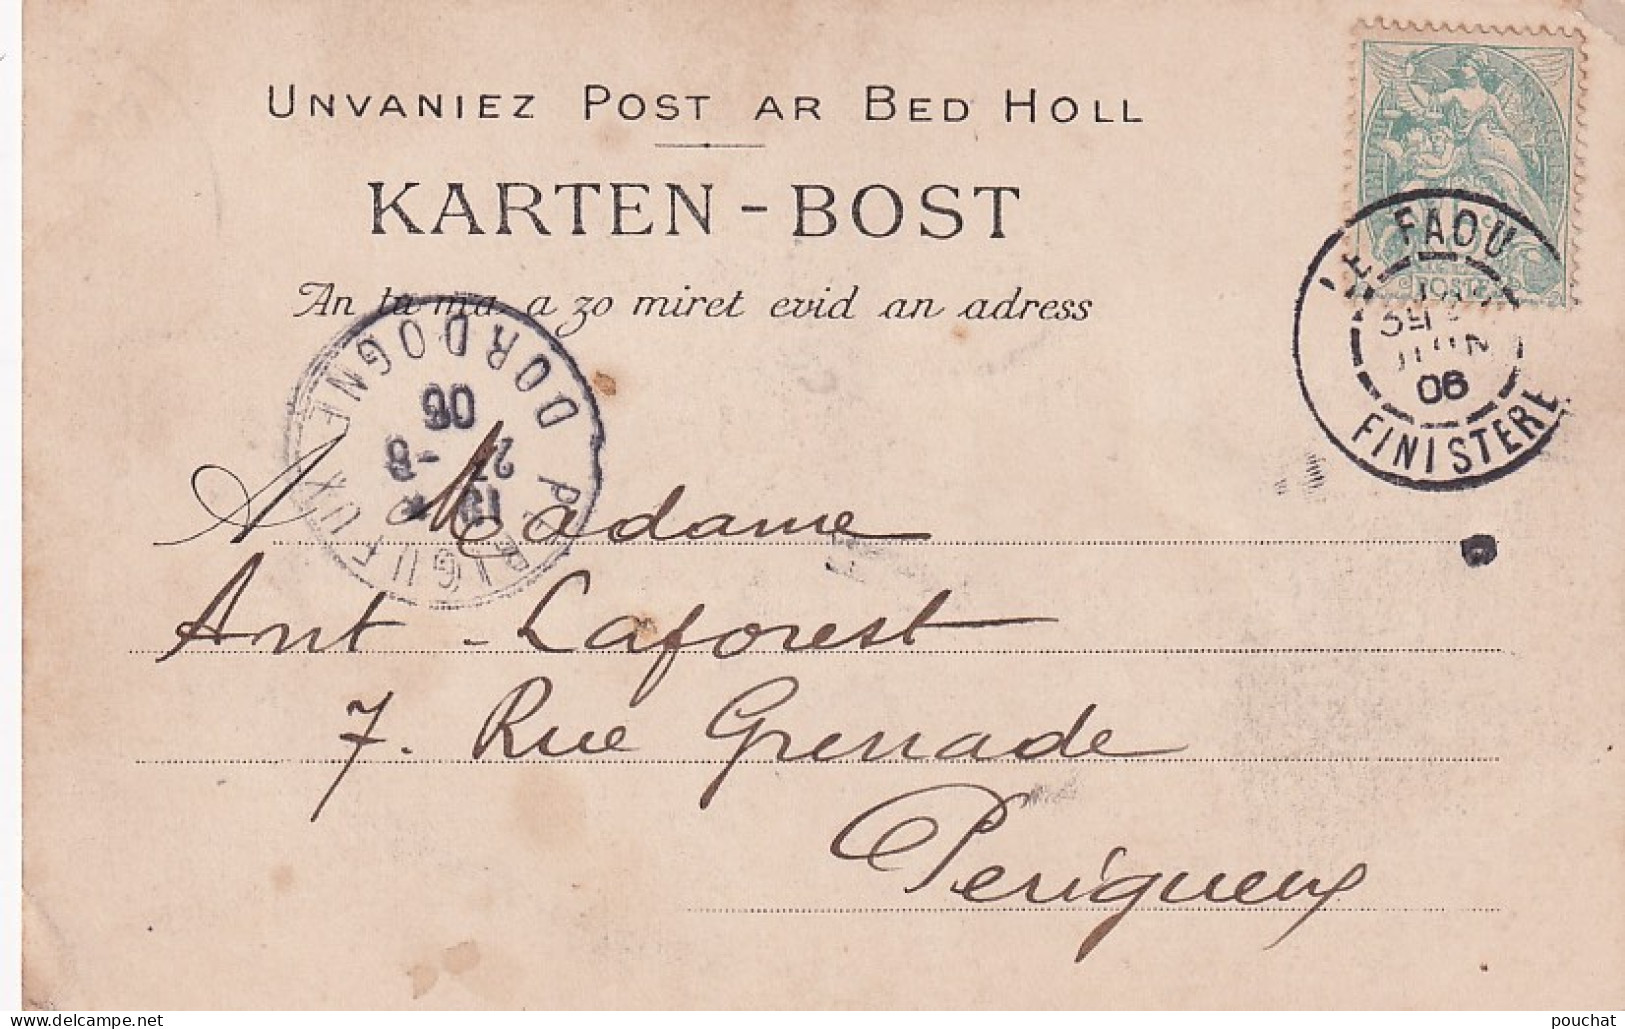 UNVANIEZ POST AR BED HOLL
KARTEN-BOST
An tu-ma a zo miret evid an adress
LE FAOU
25
JUIN
06
FINISTERE
POSTES
PERIGUEUX DORDOGNE
27 - 6
06
A Madame
Ant - Laforest
7. Rue Grenade
Perigueux
© www.delcampe.net
pouchat